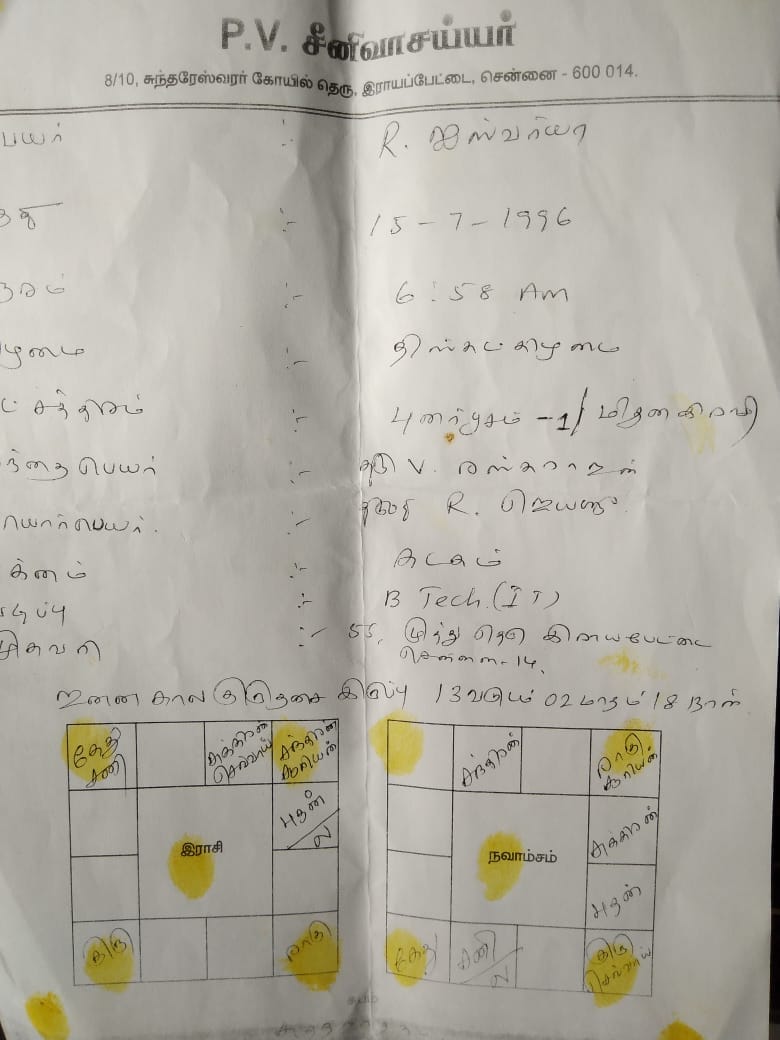 P.V. சீனிவாசய்யர்
8/10, சுந்தரேஸ்வரர் கோயில் தெரு, இராயப்பேட்டை, சென்னை - 600 014.
பெயர் :- R. ஐஸ்வர்யா
:- 15-7-1996
:- 6:58 AM
:- திங்கட்கிழமை
:- புனர்பூசம் -1/ மிதுன
பெயர் :- திரு V.
:- திருமதி R. ஜெயஸ்ரீ
:- கடகம்
:- B Tech.(IT)
:- 55, முத்து தெரு
சென்னை-14.
ஜனன கால குருதசை இருப்பு 13 வருடம் 02 மாதம் 18 நாள்
கேது சனி சுக்கிரன் செவ்வாய் சந்திரன் சூரியன்
புதன் ல
இராசி
குரு ராகு
சந்திரன் ராகு சூரியன்
சுக்கிரன்
நவாம்சம்
புதன்
கேது சனி ல குரு செவ்வாய்